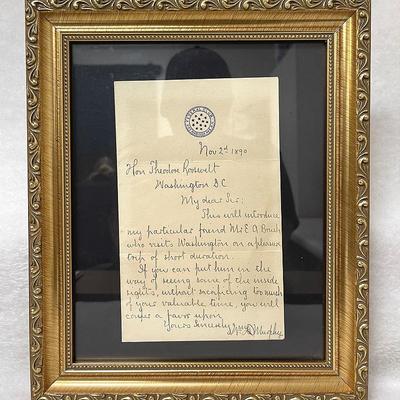 FEDERAL CLUB
Nov 2d 1890
Hon Theodore Roosvelt
Washington D.C
My dear Sir;
This will introduce
my particular found Mr E A Brush
who visits Washington on a pleasure
trip of short duration.
If you can put him in the
way of seeing some of the inside
sights, without sacrificing too much
of your valuable time, you will
confer a favor upon
Yours sincerely
Murphy